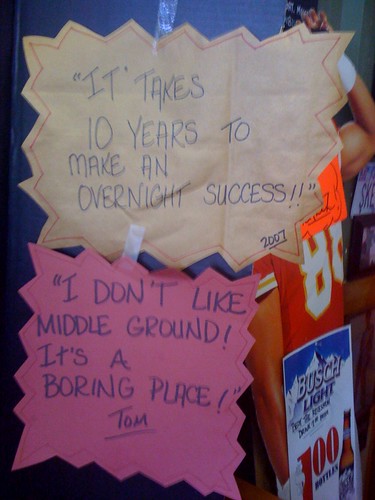 "IT TAKES
10 YEARS TO
MAKE AN
OVERNIGHT SUCCESS!!"
2007
"I DON'T LIKE
MIDDLE GROUND!
IT'S A
BORING PLACE!"
TOM
88
BUSCH
LIGHT
100
BOTTLES